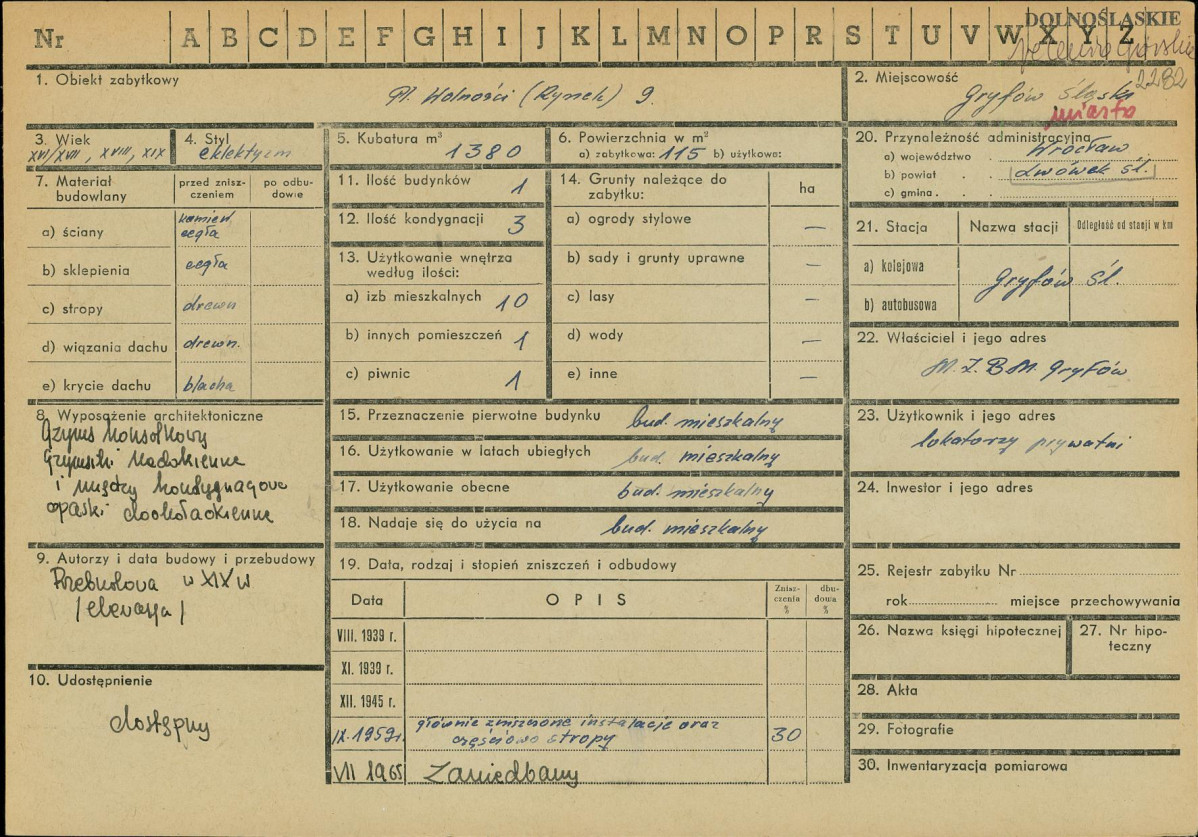 Nr A B C D E F G H I J K L M N O P R S T U V W X Y Z
DOLNOŚLĄSKIE
2282
1. Obiekt zabytkowy
Pl. Wolności (Rynek) 9.
2. Miejscowość
Gryfów Śląski
miasto
3. Wiek
XVI/XVII, XVIII, XIX
4. Styl
eklektyzm
5. Kubatura m³
1380
6. Powierzchnia w m²
a) zabytkowa: 115 b) użytkowa:
20. Przynależność administracyjna
a) województwo . Wrocław
b) powiat . . Lwówek Śl.
c) gmina . .
7. Materiał budowlany
przed zniszczeniem
po odbudowie
a) ściany
kamień
cegła
b) sklepienia
cegła
c) stropy
drewn
d) wiązania dachu
drewn.
e) krycie dachu
blacha
11. Ilość budynków
1
12. Ilość kondygnacji
3
13. Użytkowanie wnętrza
według ilości:
a) izb mieszkalnych 10
b) innych pomieszczeń 1
c) piwnic 1
14. Grunty należące do
zabytku:
ha
a) ogrody stylowe —
b) sady i grunty uprawne —
c) lasy —
d) wody —
e) inne —
21. Stacja
Nazwa stacji
Odległość od stacji w km
a) kolejowa
b) autobusowa
Gryfów Śl.
22. Właściciel i jego adres
M.Z.B.M. Gryfów
8. Wyposażenie architektoniczne
Gzyms konsolkowy
Gzymsiki nadokienne
i między kondygnacyjne
opaski dookołaokienne
15. Przeznaczenie pierwotne budynku bud. mieszkalny
16. Użytkowanie w latach ubiegłych bud. mieszkalny
17. Użytkowanie obecne bud. mieszkalny
18. Nadaje się do użycia na bud. mieszkalny
23. Użytkownik i jego adres
lokatorzy prywatni
24. Inwestor i jego adres
9. Autorzy i data budowy i przebudowy
Przebudowa w XIX w
/elewacja/
19. Data, rodzaj i stopień zniszczeń i odbudowy
Data
OPIS
Zniszczenia %
dbudowa %
VIII. 1939 r.
XI. 1939 r.
XII. 1945 r.
IX. 1959r.
głównie zniszczone instalacje oraz
częściowo stropy
30
VII 1965 Zaniedbany
25. Rejestr zabytku Nr
rok miejsce przechowywania
26. Nazwa księgi hipotecznej
27. Nr hipoteczny
10. Udostępnienie
dostępny
28. Akta
29. Fotografie
30. Inwentaryzacja pomiarowa